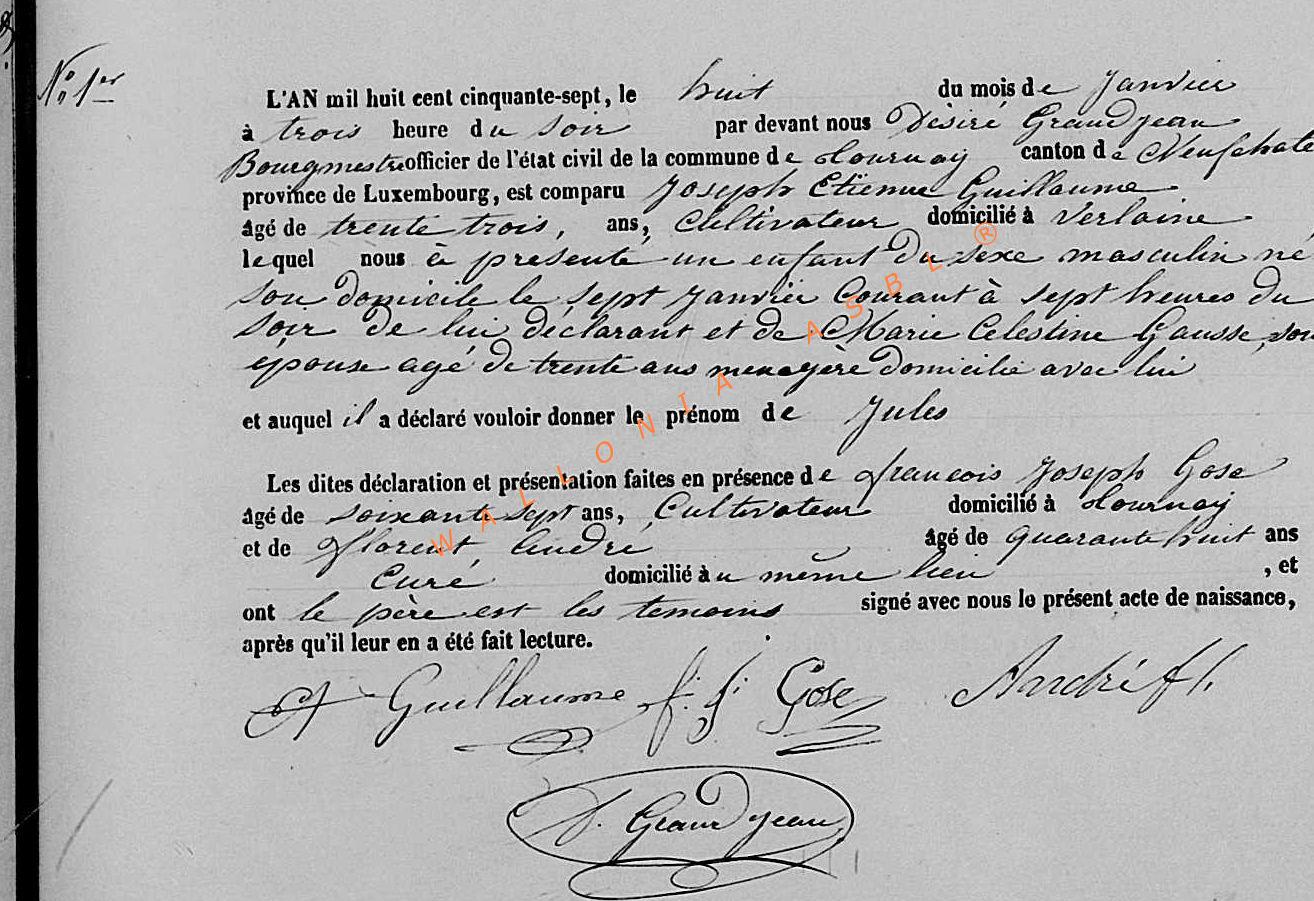 N.° 1er
L'AN mil huit cent cinquante-sept, le huit du mois de Janvier
à trois heure du soir par devant nous Désiré Grandjean
Bourgmestre officier de l'état civil de la commune de Tournay canton de Neufchate
province de Luxembourg, est comparu Joseph Etienne Guillaume
âgé de trente trois, ans, Cultivateur domicilié à Verlaine
lequel nous à présenté un enfant du sexe masculin né
son domicile le sept Janvier Courant à sept heures du
soir de lui déclarant et de Marie Celestine Gausse, son
épouse agé de trente ans menagère domicilié avec lui
et auquel il a déclaré vouloir donner le prénom de Jules
Les dites déclaration et présentation faites en présence de françois Joseph Gose
âgé de soixante sept ans, Cultivateur domicilié à Tournay
et de florent André âgé de quarante huit ans
Curé domicilié au même lieu , et
ont le père est les temoins signé avec nous le présent acte de naissance,
après qu'il leur en a été fait lecture.
Guillaume f. j. Gose André fl.
D. Grandjean
WALLONIA ASBL ®